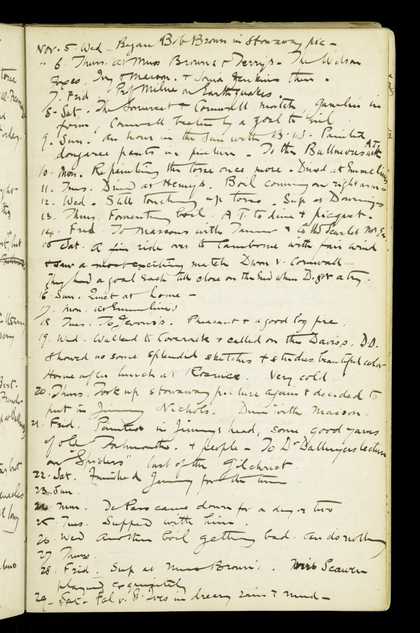 Nov. 5 Wed - Began Bob Brown in Stowaway pic -
" 6 Thurs. at Miss Brown's & Terry's. The Wilson
Foxes, Ivy & Marion. & Jenkins there.
7. Frid. Prof Milne on Earthquakes.
8. Sat. The Somerset & Cornwall match, Gamelin in
form, Cornwall beaten by a goal to nil
9. Sun. An hour in the Sun with B. W. Painted
dongaree pants in picture. To the Bullmores
10. Mon. Repainting the torso once more. Dined at
11. Tues. Dined at Henry's. Boil coming on right arm
12. Wed. Still touching up torso. Sup at Downing's
13. Thurs. Fomenting boil. A.T. to dine & picquet.
14. Frid. To Masons with &
15 Sat. A fine ride over to Camborne with fair wind
& saw a most exciting match Devon v. Cornwall
They had a goal each till close on the end when D. got a try.
16 Sun. Quiet at home -
17. Mon. at Emmeline's
18. Tues. To Jervois's. Pheasant & a good log fire.
19. Wed. Walked to Coverack & called on the Davis's. D.D.
showed us some splendid sketches & studies beautiful color
Home after lunch at Roscarick. Very cold.
20. Thurs. Took up stowaway picture again & decided to
put in Jimmy Nichols. Dine with Mason.
21. Frid. Painted in Jimmy's head, some good yarns
of old Falmouth & people - To Dr Dallinger's lecture
on "Spiders" last of the Gilchrist
22. Sat. Finished Jimmy for the time
23. Sun.
24 Mon. De Pass came down for a day or two
25 Tues. Supped with him.
26 Wed Another boil getting bad. Can do nothing
27 Thurs.
28 Frid. Sup at Miss Brown's. Miss Scawen
played exquisitely
29 - Sat - Fal v. St. Ives in dreary rain & mud -